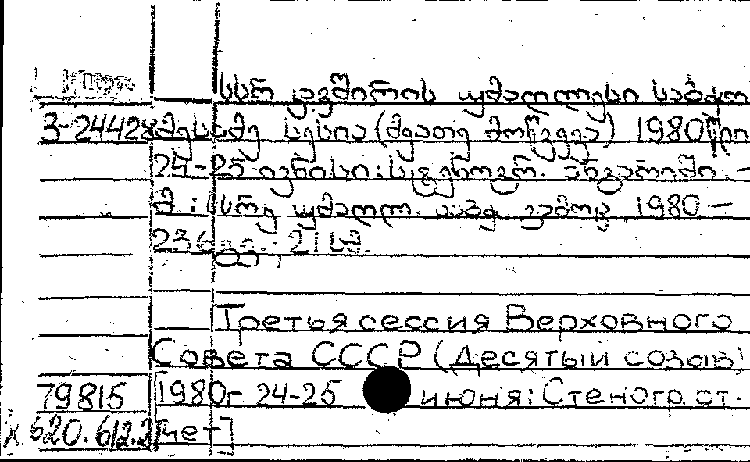 სსრ კავშირის უმაღლესი საბჭო
3-24428 მესამე სესია (მეათე მოწვევა) 1980 წლი
24-25 ივნისი: სტენოგრ. ანგარიში. –
მ.: სსრკ უმაღლ. საბჭ. გამოც. 1980 –
236 გვ.; 21 სმ.
Третья сессия Верховного
Совета СССР (Десятый созыв)
79815 1980г 24-25 июня: Стеногр. от-
чет]